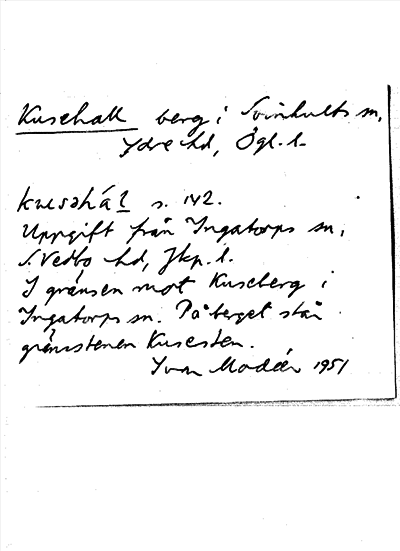 Kusehall berg i Svinhults sn,
Ydre hd, Ögl. l.
kusəhál s. 142.
Uppgift från Ingatorps sn,
S. Vedbo hd, Jkp. l.
I gränsen mot Kuseberg i
Ingatorps sn. På berget står
gränsstenen Kusesten.
Ivar Modéer 1951